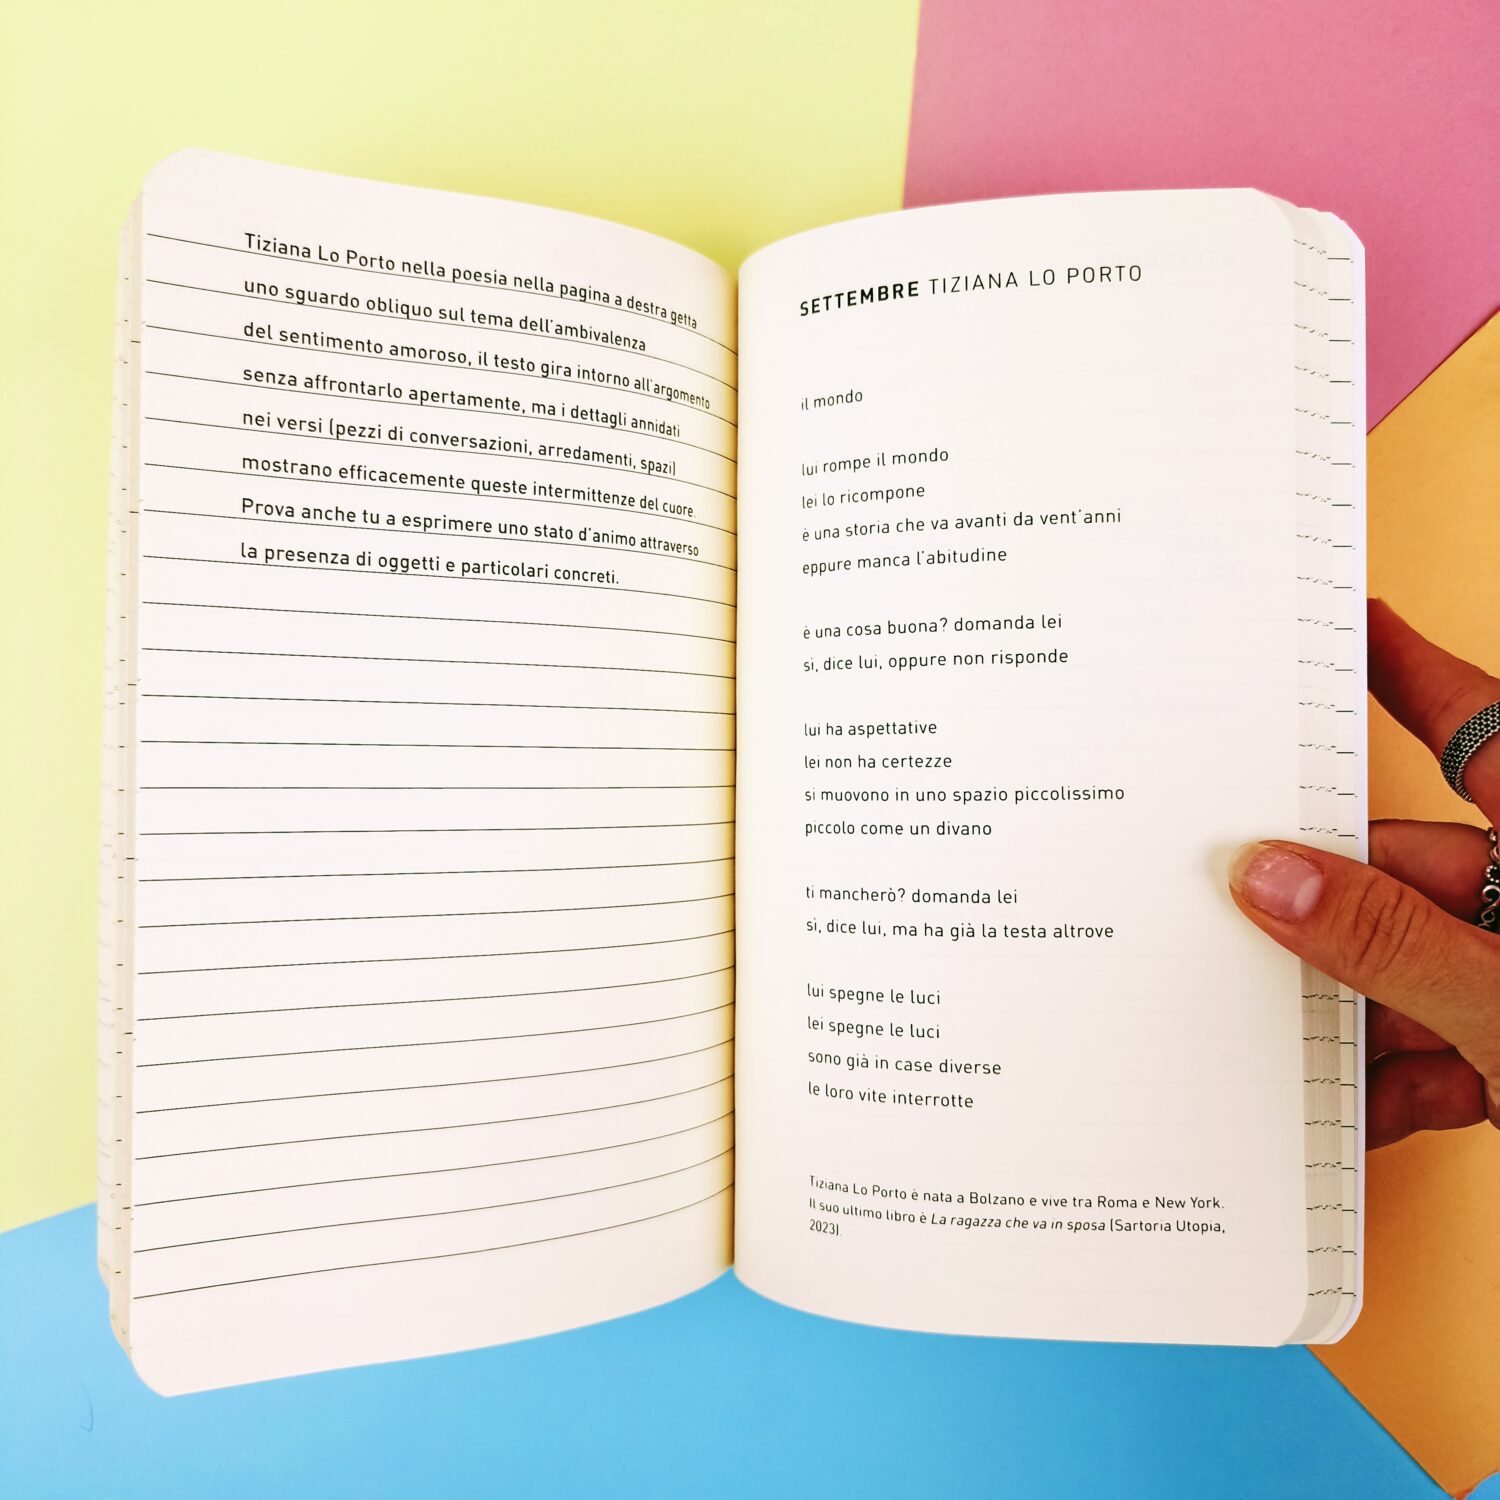 Tiziana Lo Porto nella poesia nella pagina a destra getta
uno sguardo obliquo sul tema dell'ambivalenza
del sentimento amoroso, il testo gira intorno all'argomento
senza affrontarlo apertamente, ma i dettagli annidati
nei versi (pezzi di conversazioni, arredamenti, spazi)
mostrano efficacemente queste intermittenze del cuore.
Prova anche tu a esprimere uno stato d'animo attraverso
la presenza di oggetti e particolari concreti.
SETTEMBRE TIZIANA LO PORTO
il mondo
lui rompe il mondo
lei lo ricompone
è una storia che va avanti da vent'anni
eppure manca l'abitudine
è una cosa buona? domanda lei
sì, dice lui, oppure non risponde
lui ha aspettative
lei non ha certezze
si muovono in uno spazio piccolissimo
piccolo come un divano
ti mancherò? domanda lei
sì, dice lui, ma ha già la testa altrove
lui spegne le luci
lei spegne le luci
sono già in case diverse
le loro vite interrotte
Tiziana Lo Porto è nata a Bolzano e vive tra Roma e New York.
Il suo ultimo libro è La ragazza che va in sposa (Sartoria Utopia,
2023).